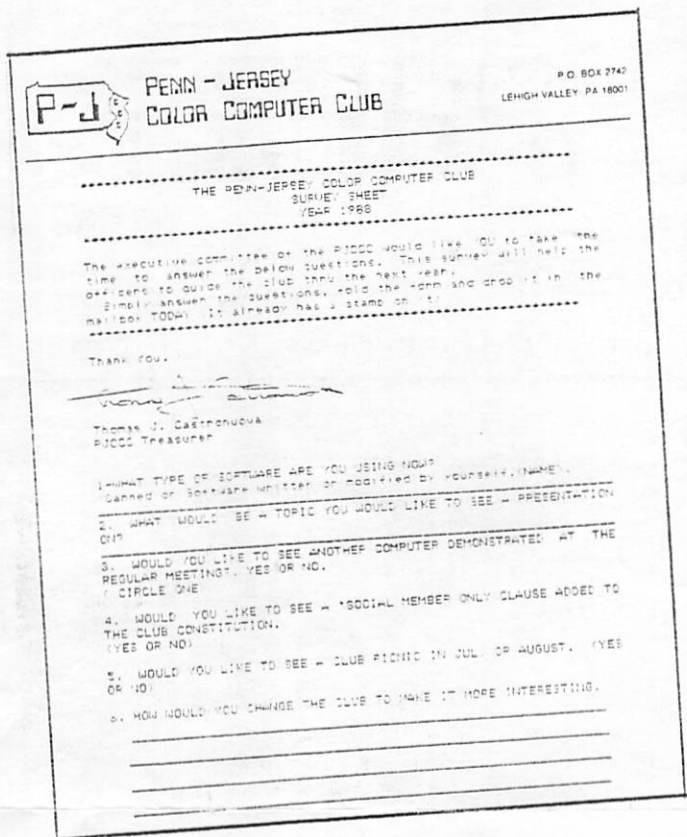 P-J
C
C
C
PENN - JERSEY
COLOR COMPUTER CLUB
P.O. BOX 2742
LEHIGH VALLEY, PA 18001
THE PENN-JERSEY COLOR COMPUTER CLUB
SURVEY SHEET
YEAR 1988
The executive committee of the PJCCC would like YOU to take the
time to answer the below questions. This survey will help the
officers to guide the club thru the next year.
Simply answer the questions, fold the form and drop it in the
mailbox TODAY (It already has a stamp on it)
Thank You,
Thomas J. Castronuova
PJCCC Treasurer
1-WHAT TYPE OF SOFTWARE ARE YOU USING NOW?
Canned or Software written or modified by yourself.(NAME).
2. WHAT WOULD BE A TOPIC YOU WOULD LIKE TO SEE A PRESENTATION
ON?
3. WOULD YOU LIKE TO SEE ANOTHER COMPUTER DEMONSTRATED AT THE
REGULAR MEETINGS. YES OR NO.
( CIRCLE ONE
4. WOULD YOU LIKE TO SEE A "SOCIAL MEMBER ONLY CLAUSE ADDED TO
THE CLUB CONSTITUTION.
(YES OR NO)
5. WOULD YOU LIKE TO SEE A CLUB PICNIC IN JULY OR AUGUST. (YES
OR NO)
6. HOW WOULD YOU CHANGE THE CLUB TO MAKE IT MORE INTERESTING.